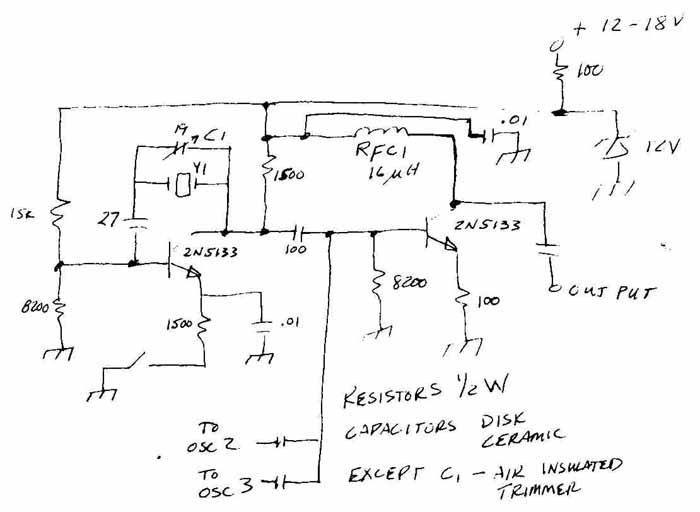 + 12-18V
100
12V
.01
RFC1
16 µH
C1
Y1
1500
15K
27
2N5133
2N5133
100
8200
8200
1500
.01
100
OUTPUT
RESISTORS 1/2 W
TO
OSC 2
CAPACITORS DISK
CERAMIC
TO
OSC 3
EXCEPT C1 - AIR INSULATED
TRIMMER